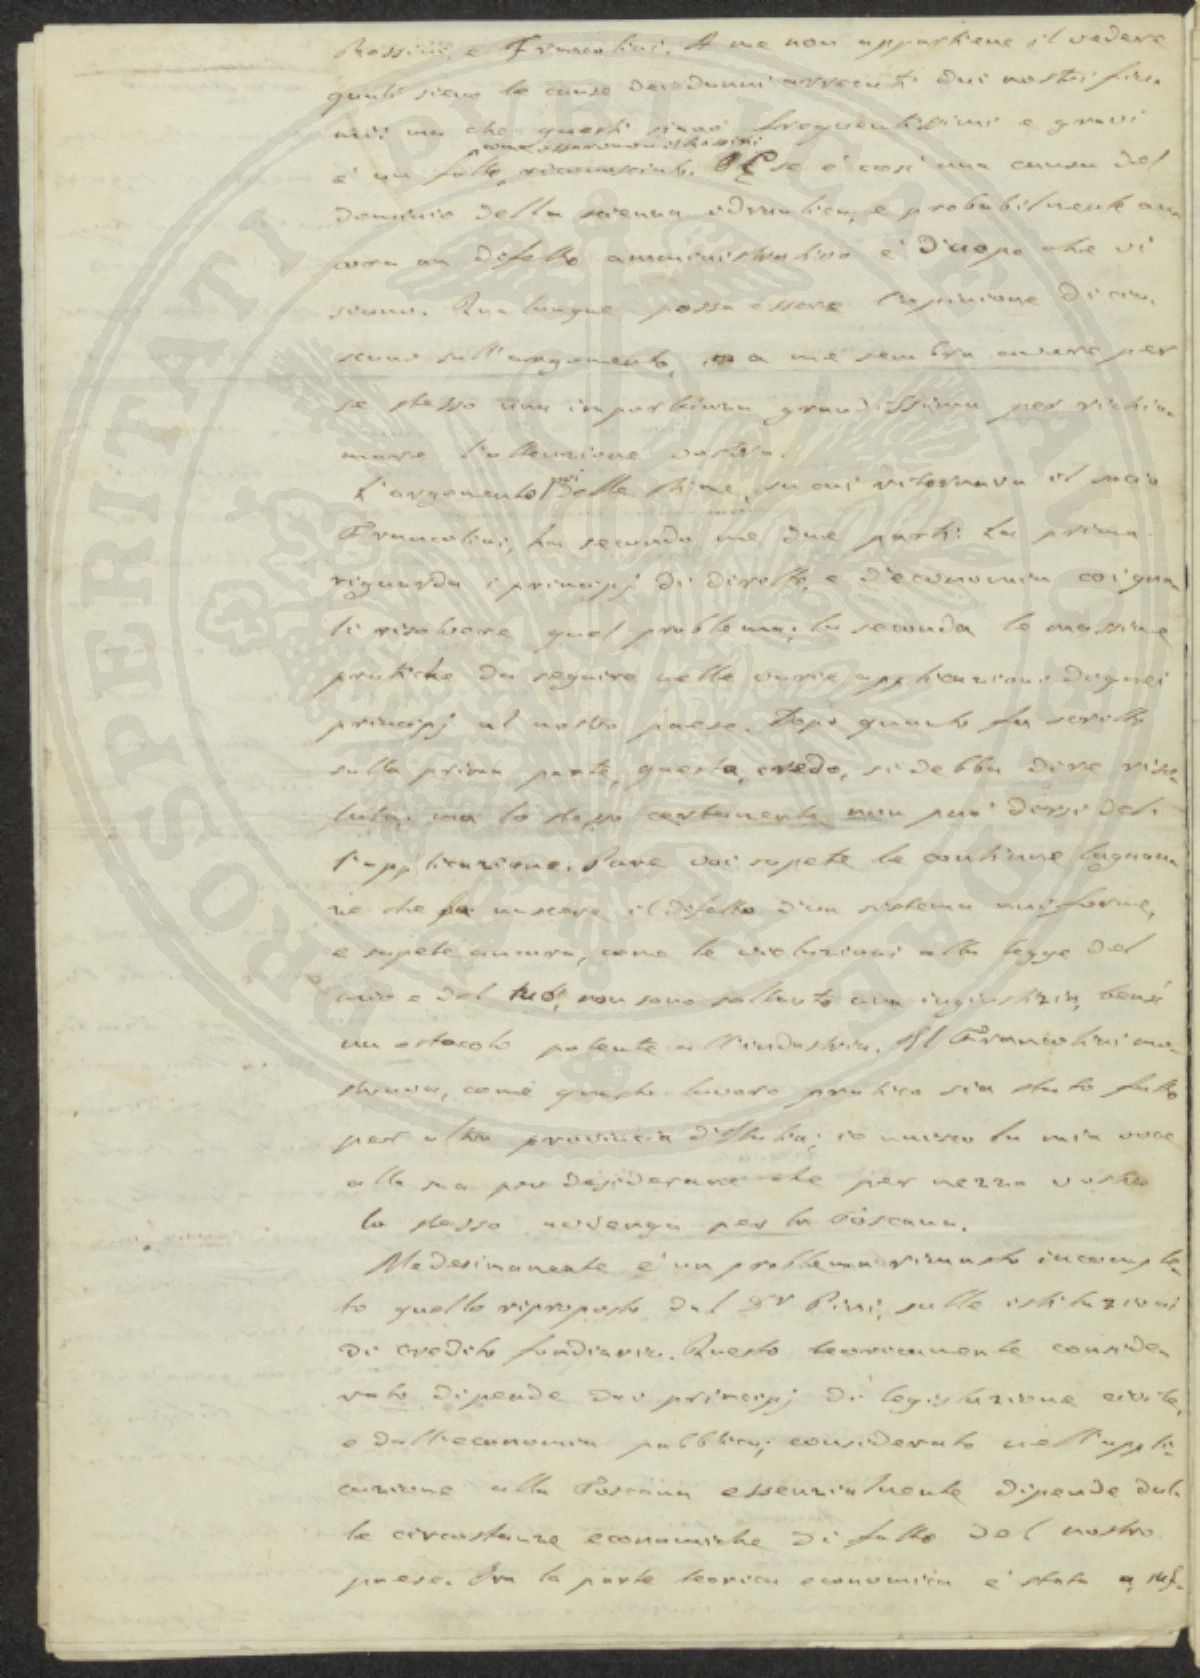 Rossini, e Francolini. A me non appartiene il vedere
quali sieno le cause dei danni arrecati dai nostri fiu-
mi; ma che questi siano frequentissimi e gravi
come osservava il Rossini
è un fatto riconosciuto. E se è così una causa del
dominio della scienza idraulica, e probabilmente an-
cora un difetto amministrativo è d'uopo che vi
siano. Qualunque possa essere l'opinione di cia-
scuno sull'argomento, a me sembra avere per
se stesso una importanza grandissima per richia-
mare l'attenzione vostra.
L'argomento poi delle Mine, su cui ritornava il socio
Francolini, ha secondo me due parti: La prima
riguarda i principj di diritto, e d'economia coi qua-
li risolvere quel problema; la seconda le massime
pratiche da seguire nelle varie applicazioni di quei
principj al nostro paese. Dopo quanto fu scritto
sulla prima parte, questa, credo, si debba dire riso-
luta; ma lo stesso certamente non può dirsi del-
l'applicazione. Pure voi sapete le continue lagnan-
ze che fa nascere il difetto d'un sistema uniforme,
e sapete ancora, come le violazioni alla legge del
mio e del tuo, non sono soltanto una ingiustizia, bensì
un ostacolo potente all'industria. Il Francolini mo-
strava, come questo lavoro pratico sia stato fatto
per altra provincia d'Italia; io unisco la mia voce
alla sua per desiderare che per mezzo vostro
lo stesso avvenga per la Toscana.
Medesimamente è un problema rimasto incomple-
to quello riproposto dal Dr Pini, sulle istituzioni
di credito fondiario. Questo teoricamente conside-
rato dipende dai principj di legislazione civile,
e dall'economia pubblica; considerato nell'appli-
cazione alla Toscana essenzialmente dipende dal-
le circostanze economiche di fatto del nostro
paese. Ora la parte teorica economica è stata a suf-
PROSPERITATI PUBLICAE